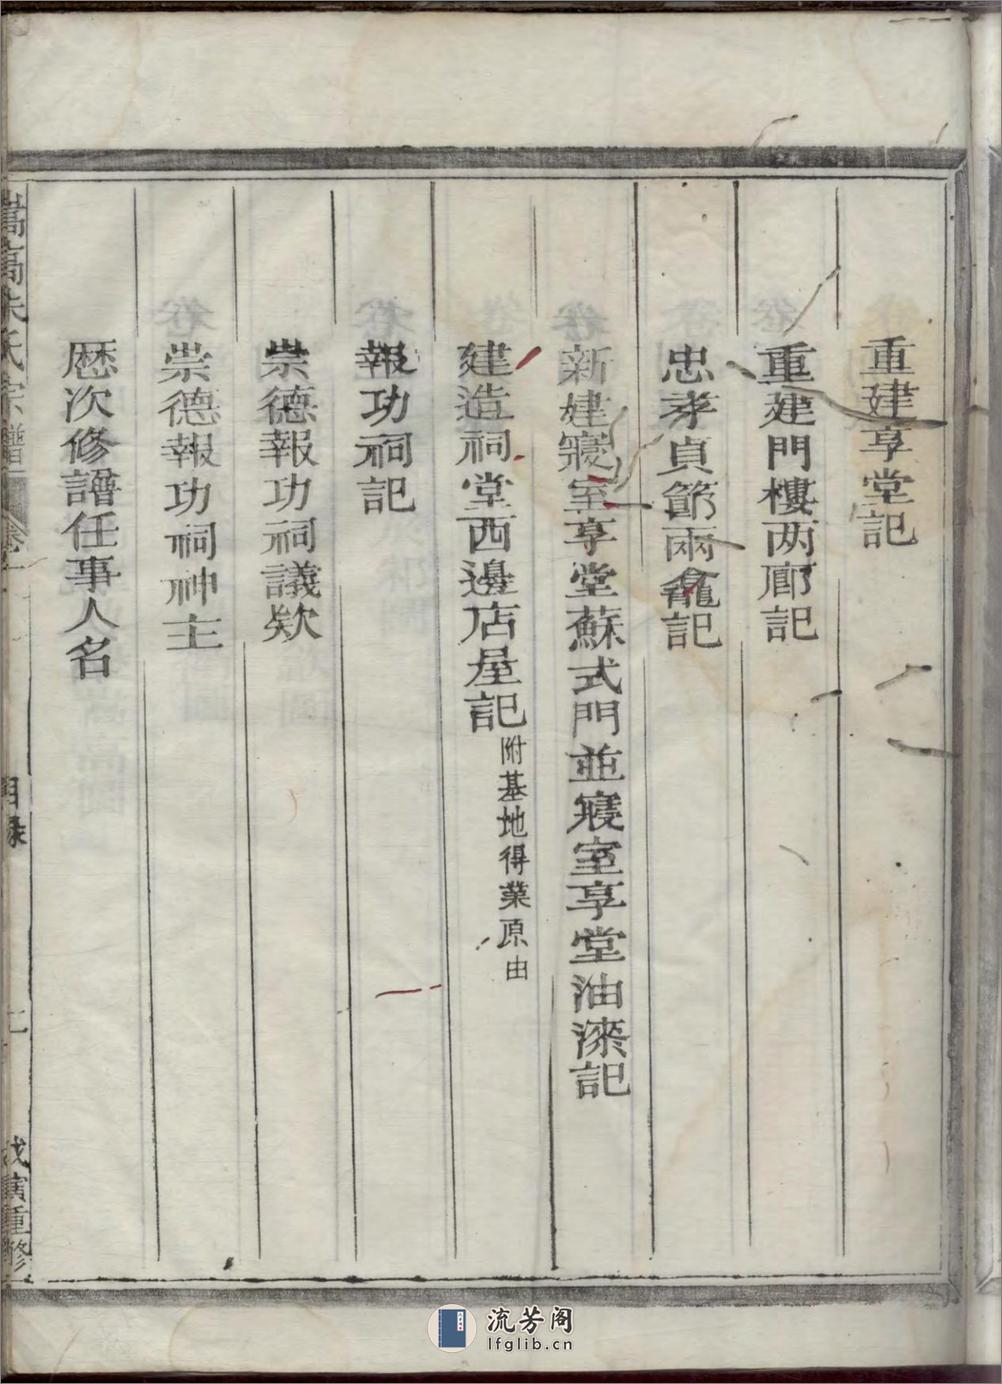 重建享堂記
重建門樓两廊記
忠孝貞節兩龕記
新建寢室享堂蘇式門並寢室享堂油漆記
建造祠堂西邊店屋記 附基地得業原由
報功祠記
崇德報功祠議欵
崇德報功祠神主
歷次修譜任事人名
嵩高朱氏宗譜 卷 目錄 二 戊寅重修
流芳阁
lfglib.cn